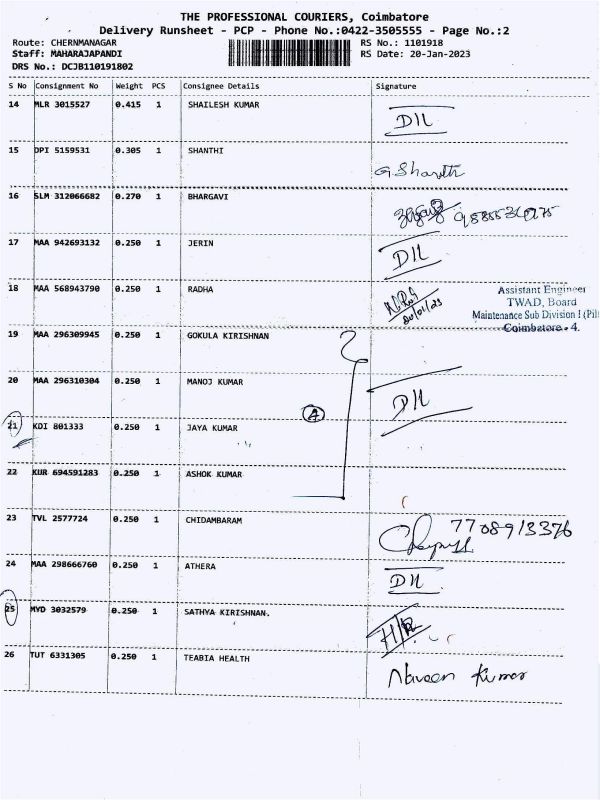 THE PROFESSIONAL COURIERS, Coimbatore
Delivery Runsheet - PCP - Phone No.:0422-3505555 - Page No.:2
Route: CHERNMANAGAR RS No.: 1101918
Staff: MAHARAJAPANDI RS Date: 20-Jan-2023
DRS No.: DCJB110191802
S No Consignment No Weight PCS Consignee Details Signature
14 MLR 3015527 0.415 1 SHAILESH KUMAR
15 DPI 5159531 0.305 1 SHANTHI
16 SLM 312066682 0.270 1 BHARGAVI
17 MAA 942693132 0.250 1 JERIN
18 MAA 568943790 0.250 1 RADHA
20/01/23
Assistant Engineer
TWAD, Board
Maintenance Sub Division I (Pil
Coimbatore - 4.
19 MAA 296309945 0.250 1 GOKULA KIRISHNAN
20 MAA 296310304 0.250 1 MANOJ KUMAR
A
21 KDI 801333 0.250 1 JAYA KUMAR
22 KUR 694591283 0.250 1 ASHOK KUMAR
23 TVL 2577724 0.250 1 CHIDAMBARAM 7708913376
24 MAA 298666760 0.250 1 ATHERA
25 MYD 3032579 0.250 1 SATHYA KIRISHNAN.
26 TUT 6331305 0.250 1 TEABIA HEALTH Naveen Kumar